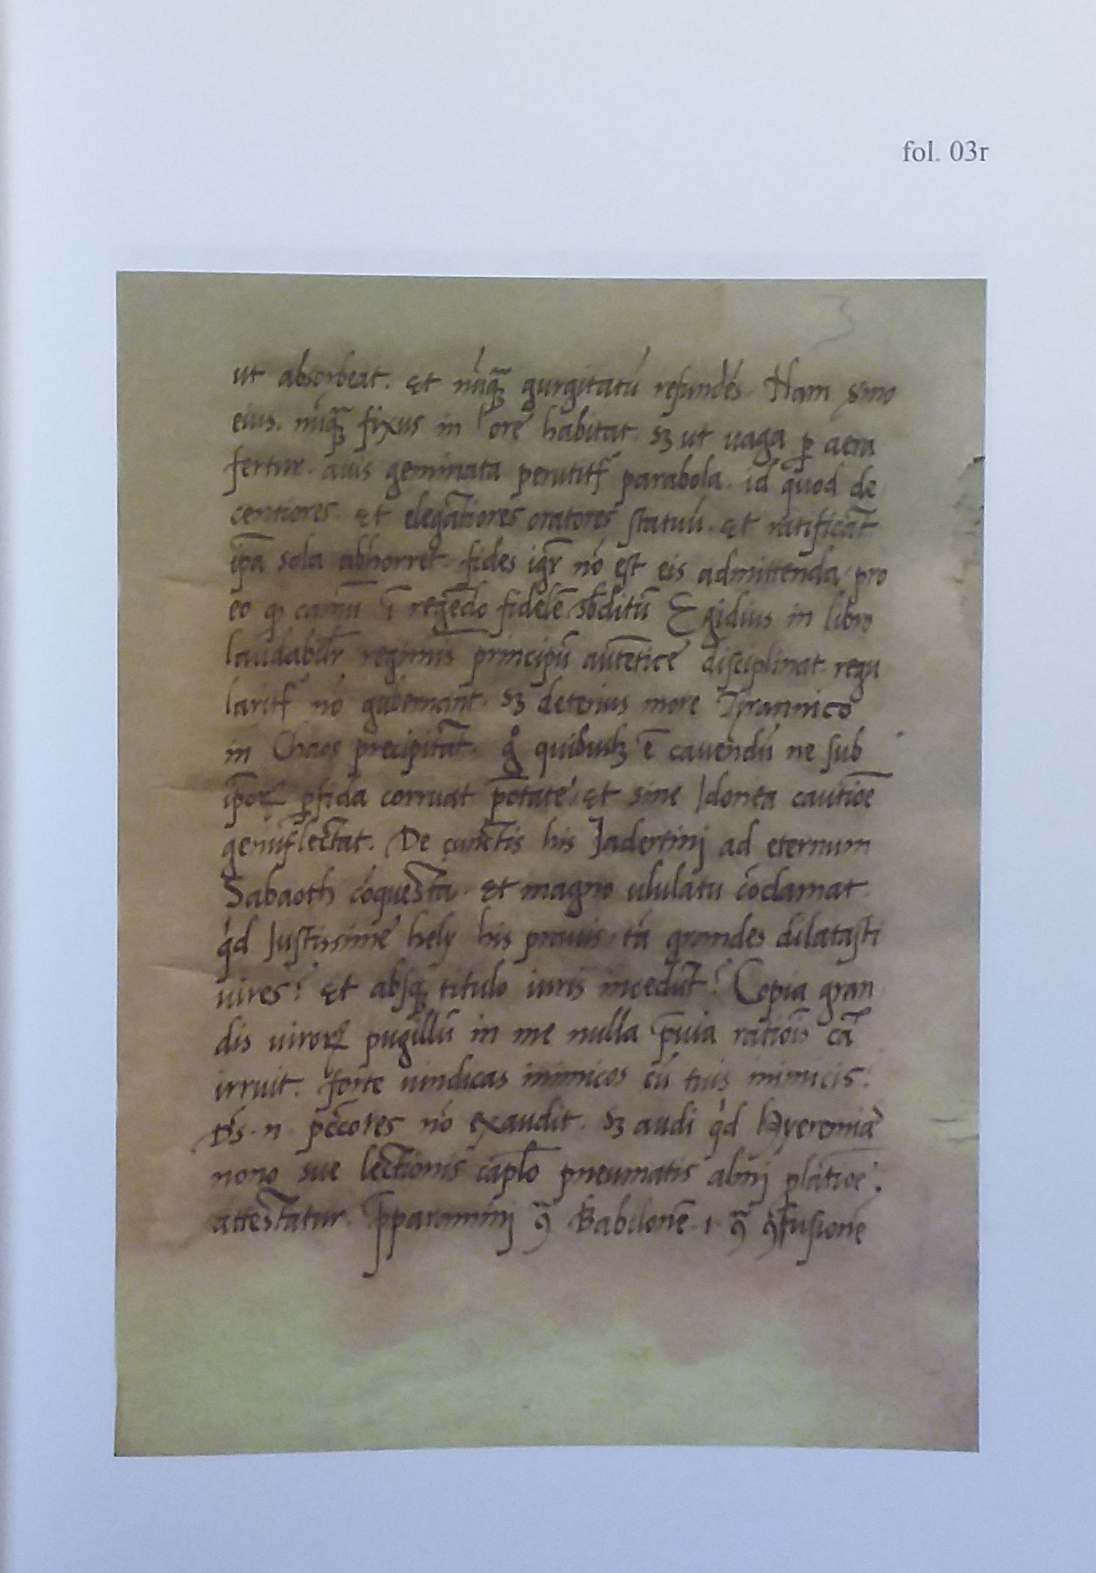 fol. 03r
3
ut absorbeat. et nūqꝫ gurgitatū refundēs. Nam smo
eius. nūqꝫ fixus in ore habitat. sꝫ ut uaga ꝑ aera
fertur. auis geminata parabola. id quod de
centiores. et elegātiores oratores statuū. et ratificāt
ip̄a sola abhorret. fides igr̄ nō est eis admittenda pro
eo ꝙ ī regēdo fidelē sb̄ditū Egidius in libro
laudabilr̄ regimīs principū autētice disciplinat. regu
nō gubernant. sꝫ deterius more Tyrannico
in Chaos precipitāt. gͦ ē cauendū ne sub
ip̄oꝝ ꝑfida corruat p̄otate. et sine Idonea cautioē
genuflectat. De cunctis his Jadertinj ad eternum
Sabaoth cōquesta. et magno ululatu cōclamat.
qd Justissime hely his prauis tā grandes dilatasti
uires? et absqꝫ titulo iuris incedūt? Copia gran
dis uiroꝝ pugillū in me nulla p̄uia ratiōis cā
irruit. forte uindicas inimicos cū tuis inimicis?
Ds̄. n. pc̄cores nō exaudit. sꝫ audi qd Hyeremia
nono sue lectionis caplo pneumatis almj platioē.
attestatur. p̄paraminj ꝯ Babilonē .i. ꝯ ꝯfusionē